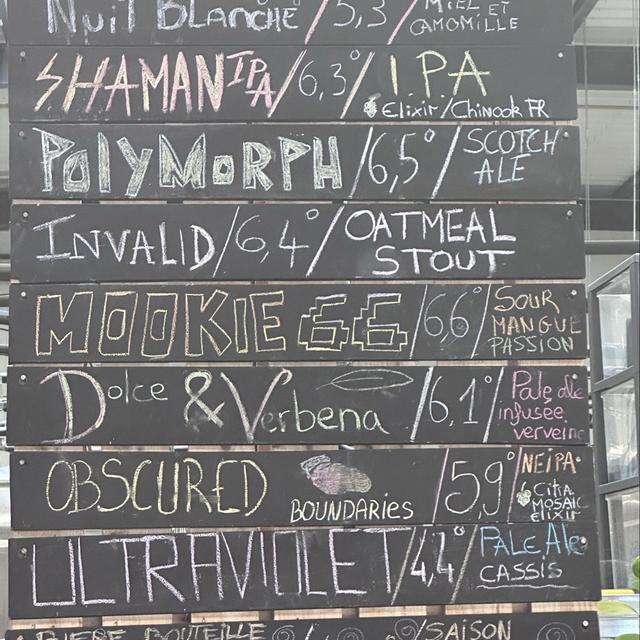 Nuit Blanche / 5,3 / MIEL ET CAMOMILLE
SHAMAN IPA / 6,3° / I.P.A
Elixir / Chinook FR
POLYMORPH / 6,5° / SCOTCH ALE
INVALID / 6,4° / OATMEAL STOUT
MOOKIE 66 / 6,6° / SOUR MANGUE PASSION
Dolce & Verbena / 6,1° / Pale ale infusée verveine
OBSCURED BOUNDARIES / 5,9° / NEIPA
Citra MOSAIC Elixir
ULTRAVIOLET / 4,4° / PALE Ale CASSIS
BIERE BOUTEILLE / SAISON